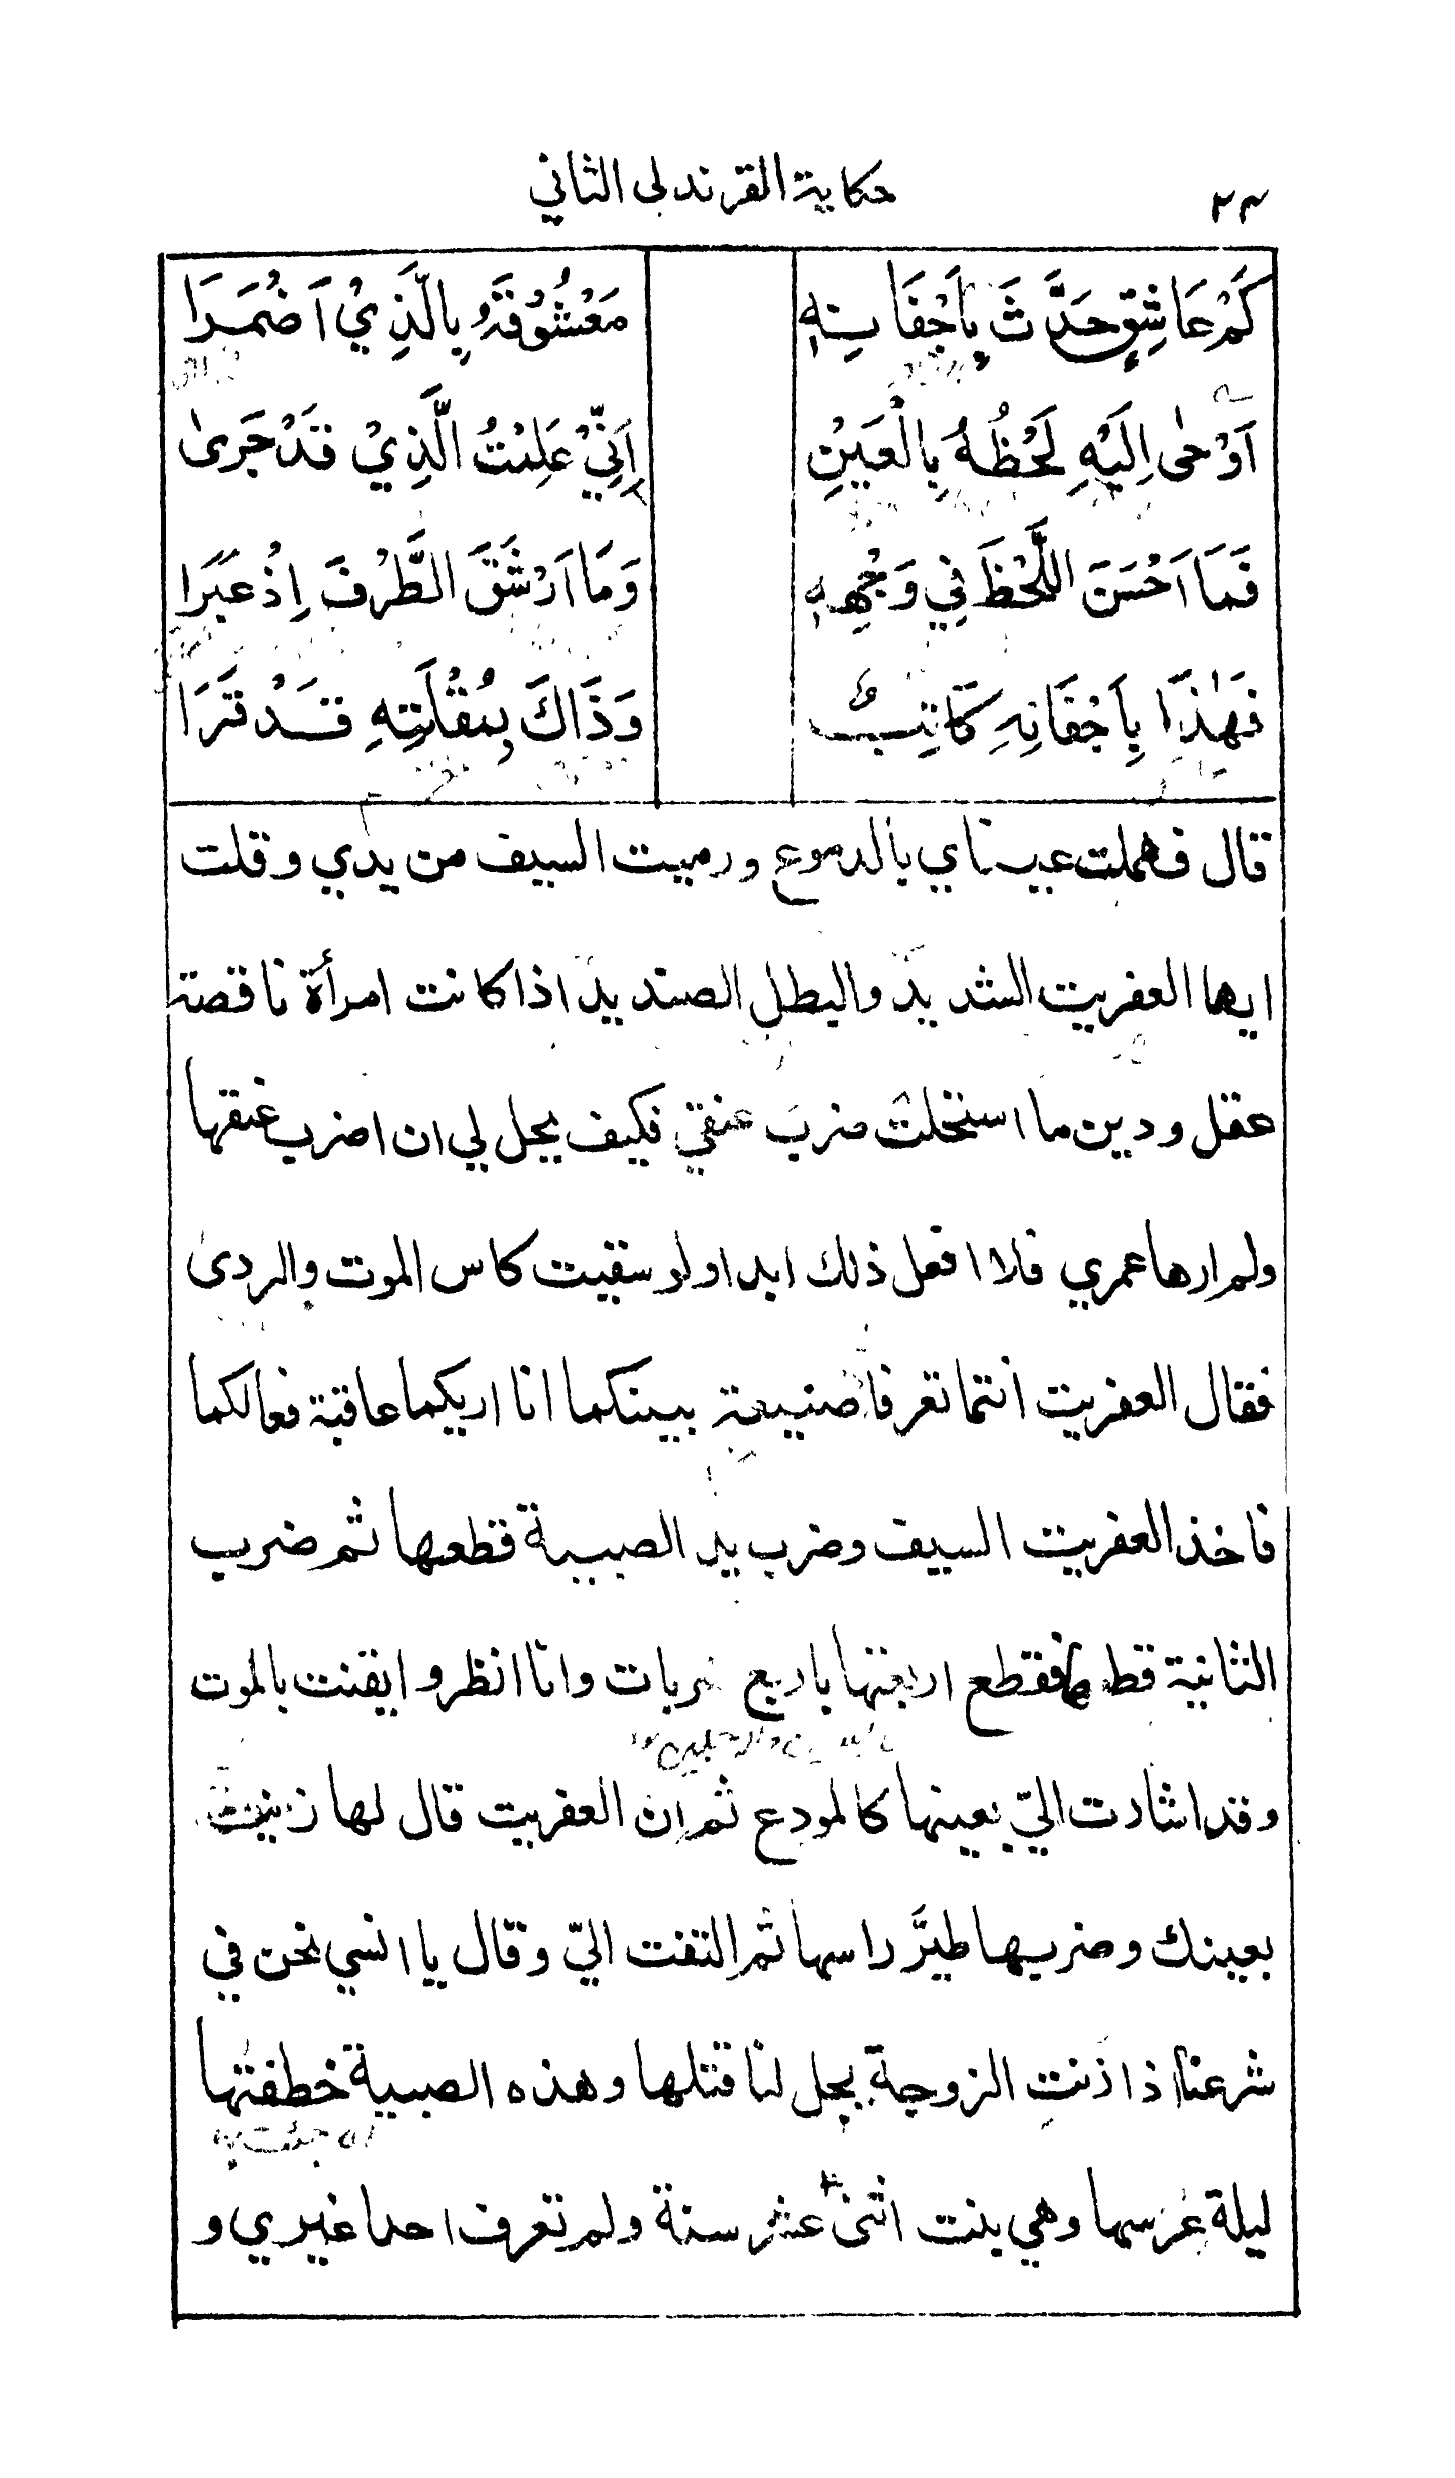 ٢٣ حكاية القرندلي الثاني
كَمْ عَاشِقٍ حَدَّثَ بِأَجْفَانِهِ مَعْشُوقَهُ بِالَّذِيْ اَضْمَرَا
اَوْحٰى اِلَيْهِ لَحْظُهُ بِالْعَيْنِ اِنِّيْ عَلِمْتُ الَّذِيْ قَدْ جَرىٰ
فَمَا اَحْسَنَ اللَّحْظَ فِي وَجْهِهِ وَمَا اَرْشَقَ الطَّرْفَ اِذْ عَبَرَا
فَهٰذَا بِاَجْفَانِهِ كَاتِبٌ وَذَاكَ بِمُقْلَتِهِ قَدْ قَرَا
قال فهملت عيناي بالدموع ورميت السيف من يدي وقلت
ايها العفريت الشديد والبطل الصنديد اذا كانت امرأة ناقصة
عقل ودين ما استحلت ضرب عنقي فكيف يحل لي ان اضرب عنقها
ولم ارها عمري فلا افعل ذلك ابدا ولو سقيت كاس الموت والردى
فقال العفريت انتما تعرفا صنيعة بينكما انا اريكما عاقبة فعالكما
فاخذ العفريت السيف وضرب يد الصبية قطعها ثم ضرب
الثانية قطعها فقطع اربعتها باربع ضربات وانا انظر و ايقنت بالموت
وقد اشارت اليّ بعينها كالمودع ثم ان العفريت قال لها زنيت
بعينك وضربها طيَّر راسها ثم التفت اليّ وقال يا انسي نحن في
شرعنا اذا زنت الزوجة يحل لنا قتلها وهذه الصبية خطفتها
ليلة عرسها وهي بنت اثنى عشر سنة ولم تعرف احدا غيري و